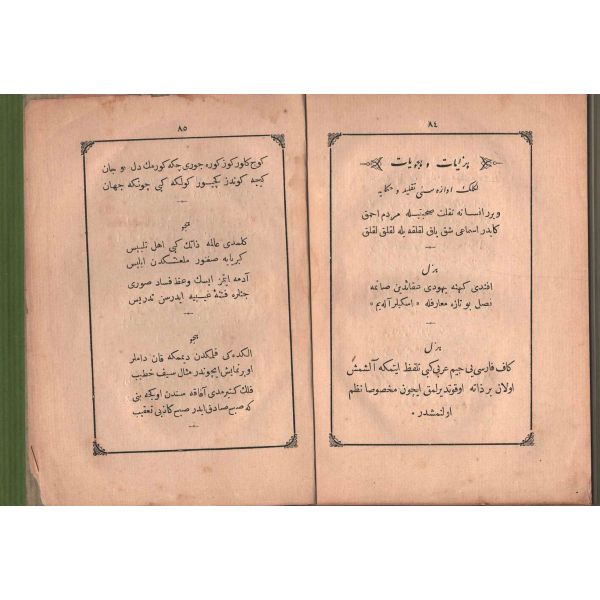 ٨٤
هزلیات و هجویات
لکلک اوازه سنی تقلید و حکایه
ویرر انسانه ثقلت صحبتیله مردم احمق
کیدر اسماعی شق یاق لقلقه یله لقلق لقلق
هزل
افندی کهنه یهودی صفاتدین صانمه
فصل بو تازه معارفله « اسکیلر آله یم »
هزل
کاف فارسی یی جیم عربی کبی تلفظ ایتمکه آلشمش
اولان بر ذاته اوقوندیرلمق ایچون مخصوصا نظم
اولنمشدر .
٨٥
کوج کلور کوز کوره جوری چکه کورمك دل و جان
کیجه کوندز کچیور کولکه کبی چونکه جهان
هجو
کلمدی عالمه ذاتك کبی اهل تلبیس
کبریایه صغنور ملعنتکدن ابلیس
آدمه ایتمز ایسك وعظ فساد صوری
جناره فتنۀ غیبیه ایدرسن تدریس
هجو
الکده کی قلمکدن دیمعکه قان داملر
اورنمایش ایچوندر مثال سیف خطیب
فلك کتیرمدی آفاقه سندن اولیکه بنی
که صبح صادقی ایدر صبح کاذبی تعقیب